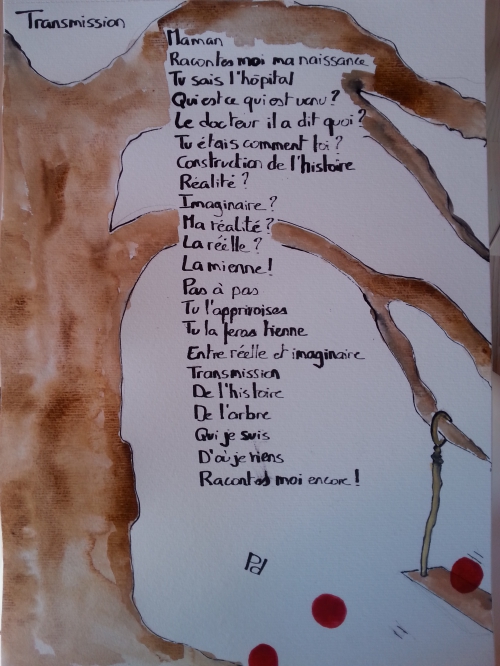 Transmission
Maman
Racontes moi ma naissance
Tu sais l'hôpital
Qui est ce qui est venu ?
Le docteur il a dit quoi ?
Tu étais comment toi ?
Construction de l'histoire
Réalité ?
Imaginaire ?
Ma réalité ?
La réelle ?
La mienne !
Pas à pas
Tu l'apprivoises
Tu la feras tienne
Entre réelle et imaginaire
Transmission
De l'histoire
De l'arbre
Qui je suis
D'où je viens
Racontes moi encore !
Pd